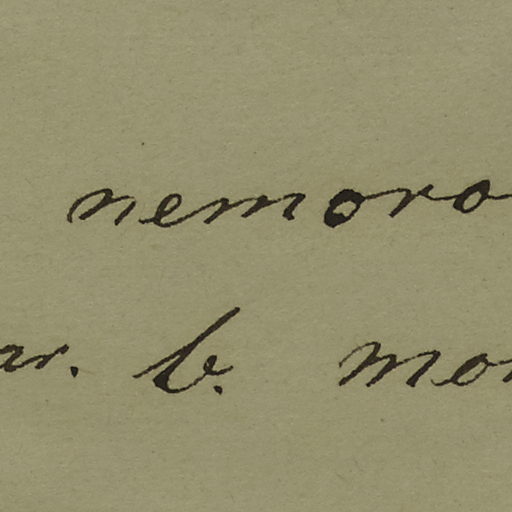 nemoro
ar. b. mon